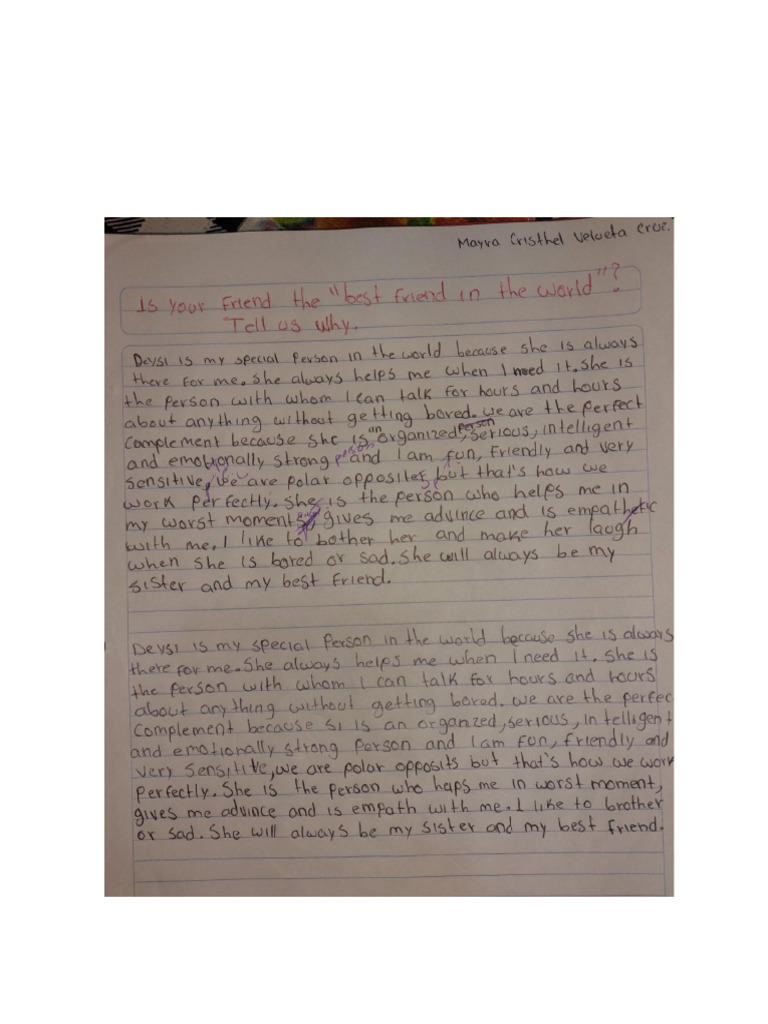 Mayra Cristhel Velueta Cruz.
Is your Friend the "best friend in the world"?
Tell us why.
Deysi is my special Person in the world because she is always
there for me. She always helps me when I need it. She is
the person with whom I can talk for hours and hours
about anything without getting bored. We are the perfect
complement because she is an organized, person serious, intelligent
and emotionally strong person and I am fun, Friendly and very
sensitive, we are polar opposites but that's how we
work perfectly. She is the person who helps me in
my worst moments, gives me advince and is empathetic
with me. I like to bother her and make her laugh
when she is bored or sad. She will always be my
sister and my best Friend.
Deysi is my special Person in the world because she is always
there for me. She always helps me when I need it. She is
the person with whom I can talk for hours and hours
about anything without getting bored. We are the perfec
complement because si is an organized, serious, intelligent
and emotionally strong person and I am fun, friendly and
very sensitive, we are polar opposits but that's how we work
perfectly. She is the person who haps me in worst moment,
gives me advince and is empath with me. I like to brother
or sad. She will always be my sister and my best friend.